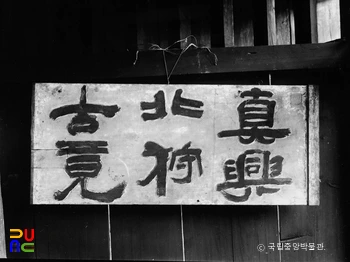 眞興
北狩
古竟
© 국립중앙박물관